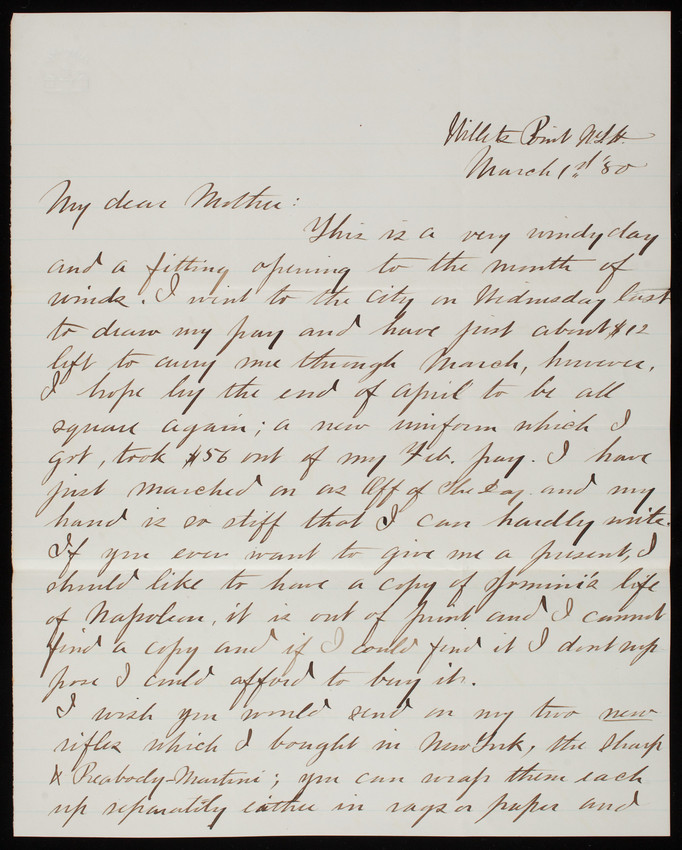 Willets Point N.Y.H.
March 1st '80
My dear Mother:
This is a very windy day
and a fitting opening to the month of
winds. I went to the City on Wednesday last
to draw my pay and have just about $12
left to carry me through March, however,
I hope by the end of April to be all
square again; a new uniform which I
got, took $56 out of my Feb. pay. I have
just marched on as Off of the Day. and my
hand is so stiff that I can hardly write.
If you ever want to give me a present, I
should like to have a copy of Jomini's life
of Napoleon, it is out of print and I cannot
find a copy and if I could find it I dont sup
pose I could afford to buy it.
I wish you would send on my two new
rifles which I bought in New York, the Sharp
& Peabody-Martini; you can wrap them each
up separately either in rags or paper and